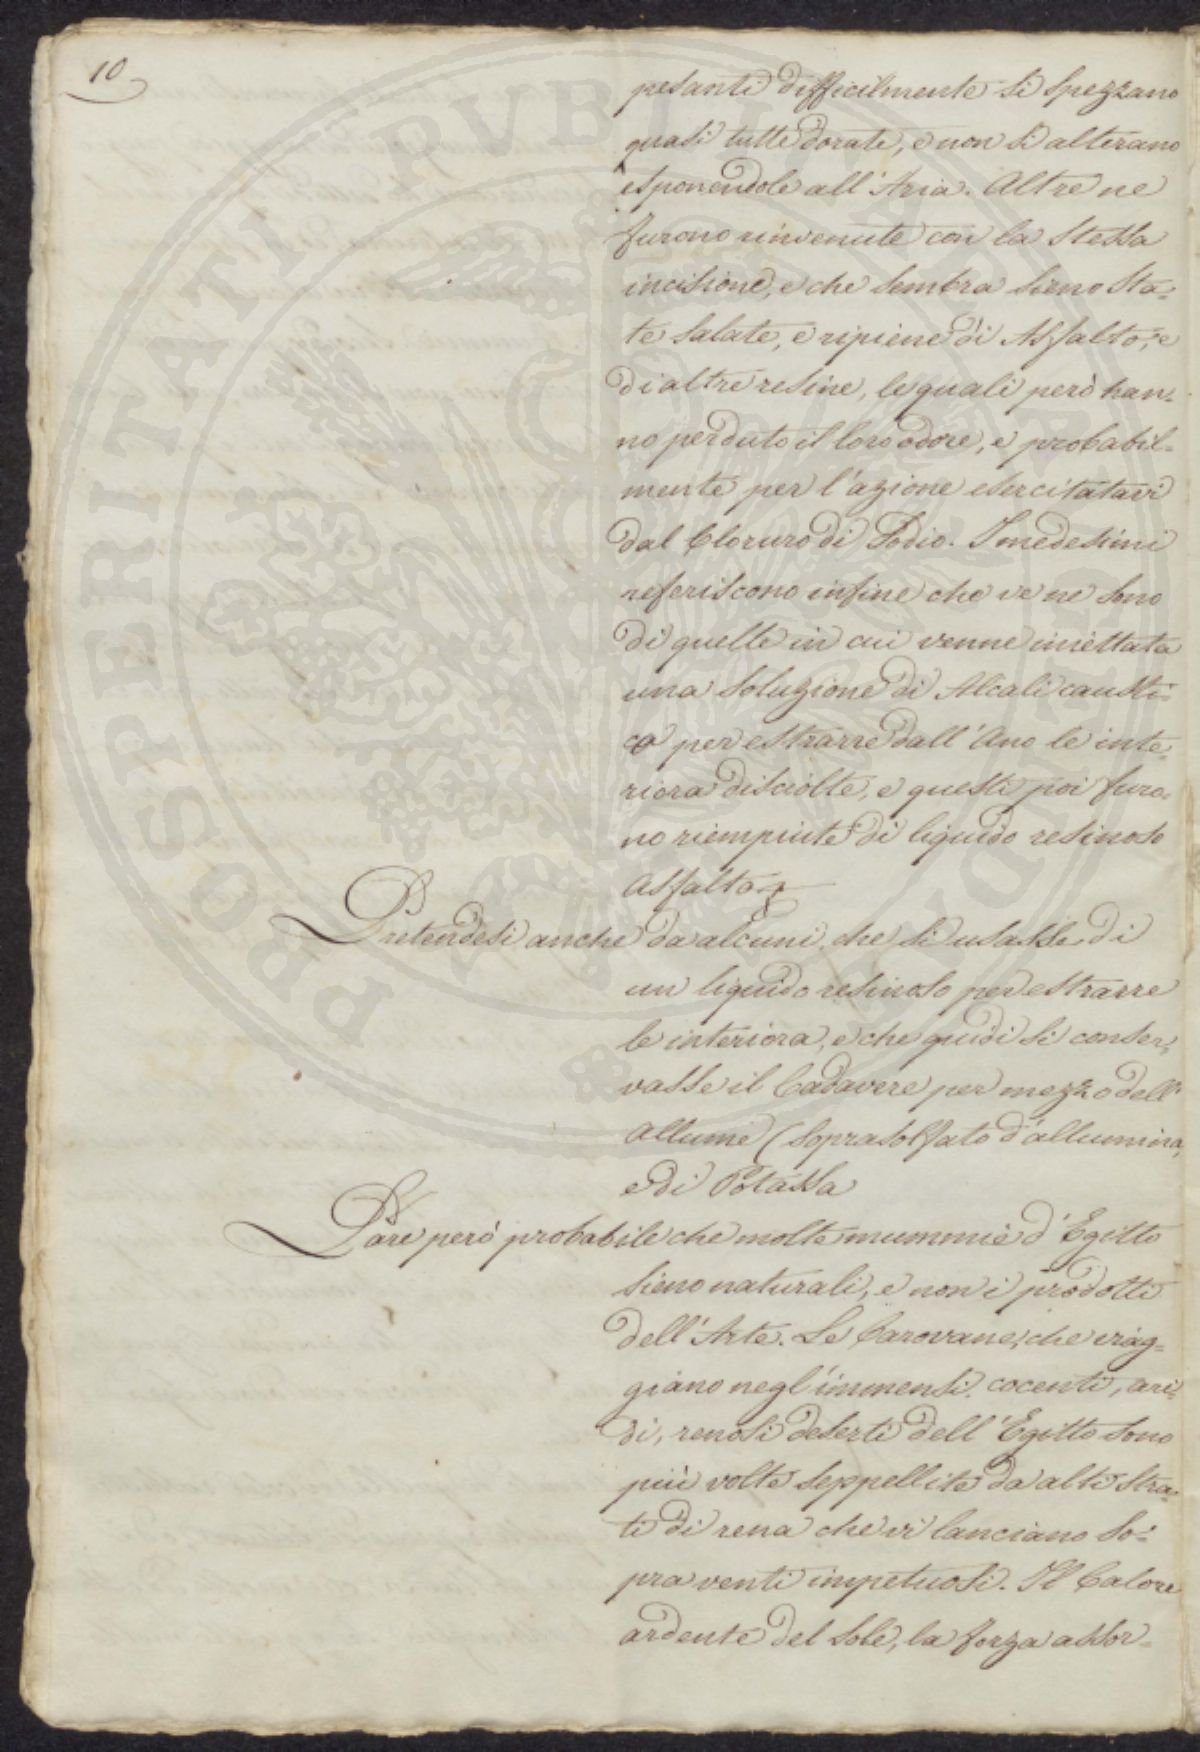 10
pesanti difficilmente si spezzano
quasi tutte dorate, e non si alterano
esponendole all'Aria. Altre ne
furono rinvenute con la stessa
incisione, e che sembra sieno sta=
te salate, e ripiene di Asfalto, e
di altre resine, le quali però han=
no perduto il loro odore, e probabil=
mente per l'azione esercitatavi
dal Cloruro di Sodio. I medesimi
referiscono infine che ve ne sono
di quelle in cui venne iniettata
una soluzione di Alcali causti=
co per estrarre dall'Ano le inte=
riora disciolte, e questi poi furo=
no riempiute di liquido resinoso
asfalto
Pretendesi anche da alcuni che si usasse di
un liquido resinoso per estrarre
le interiora, e che quidi si conser=
vasse il Cadavere per mezzo dell'
allume (soprasolfato d'allumina,
e di Potassa
Pare però probabile che molte mummie d'Egitto
sieno naturali, e non i prodotti
dell'Arte. Le Carovane, che viag=
giano negl'immensi, cocenti, ari=
di, renosi deserti dell'Egitto sono
più volte seppellite da alti stra=
ti di rena che vi lanciano so=
pra venti impetuosi. Il Calore
ardente del sole, la forza assor=
PROSPERITATI PVBLICAE